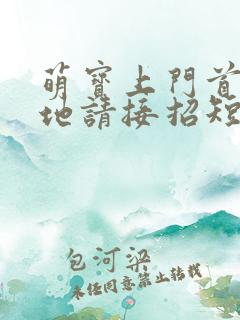 萌寶上門首
地請接招短
包河梁
未经同意禁止转载